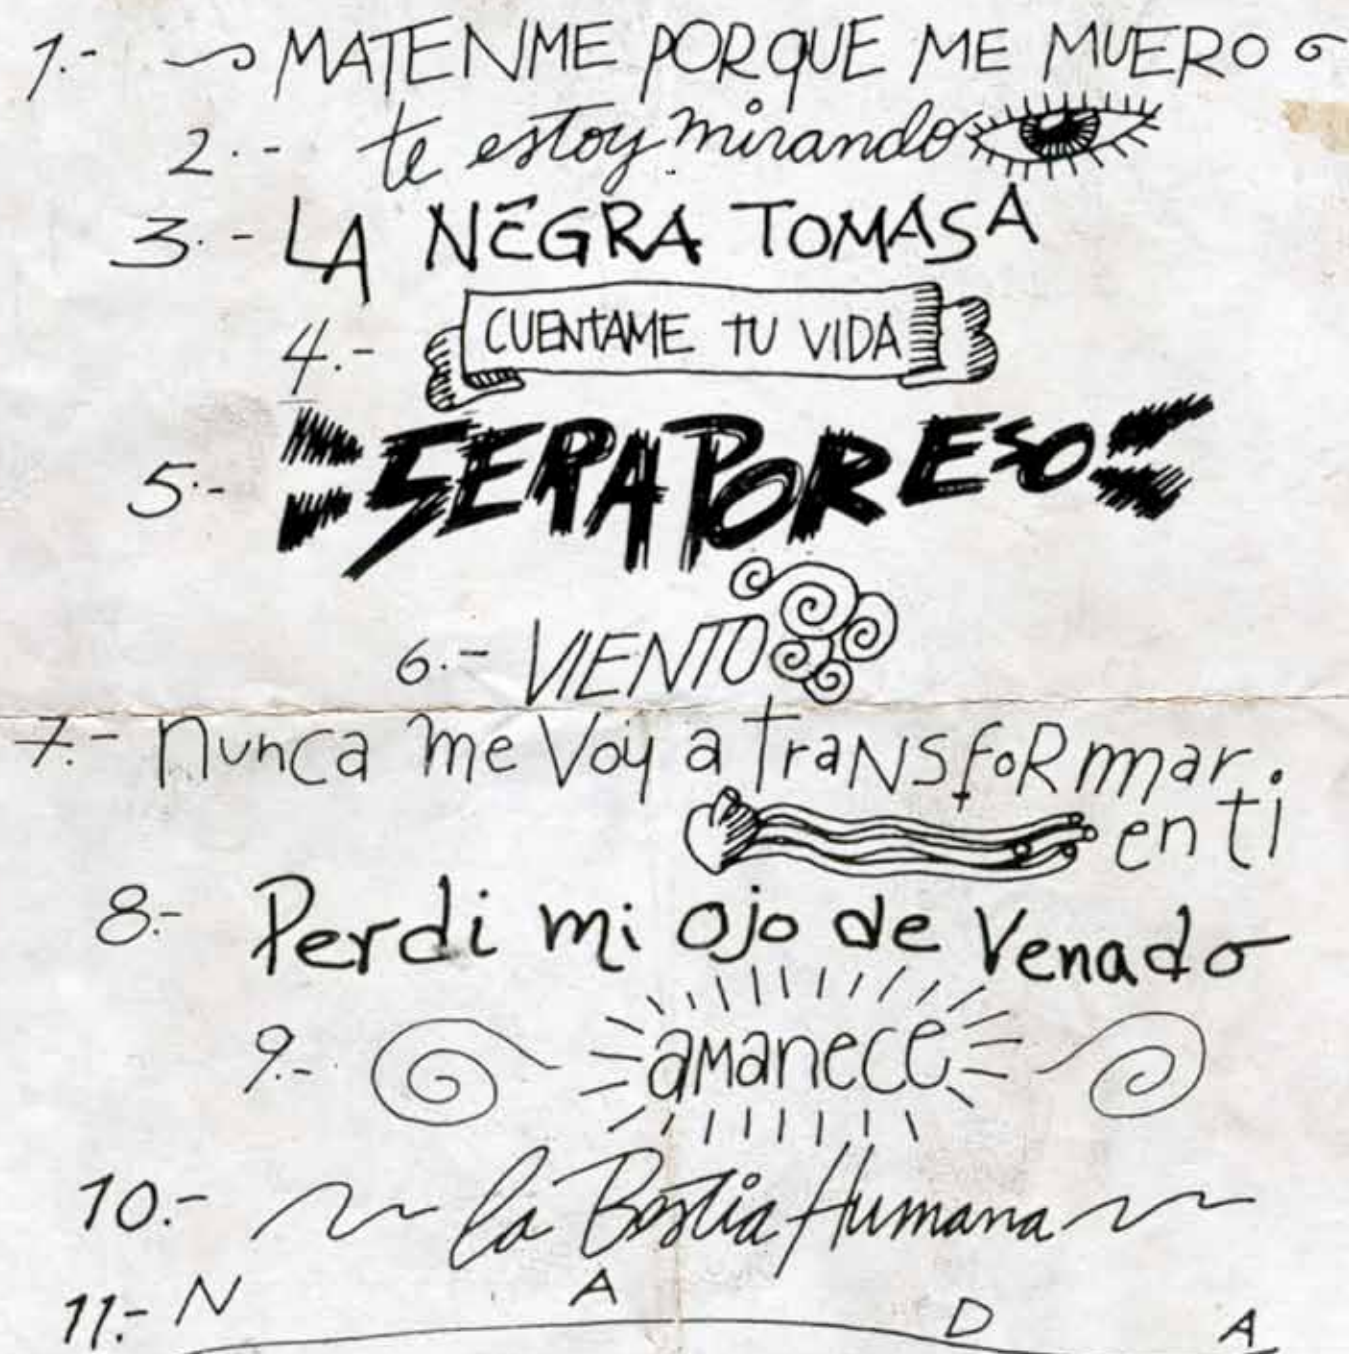 1.- MATENME PORQUE ME MUERO
2.- te estoy mirando
3.- LA NEGRA TOMASA
4.- CUENTAME TU VIDA
5.- SERA POR ESO
6.- VIENTO
7.- nunca me Voy a tRaNSfoRmar
en ti
8.- Perdi mi ojo de Venado
9.- aManece
10.- la Bestia Humana
11.- N A D A